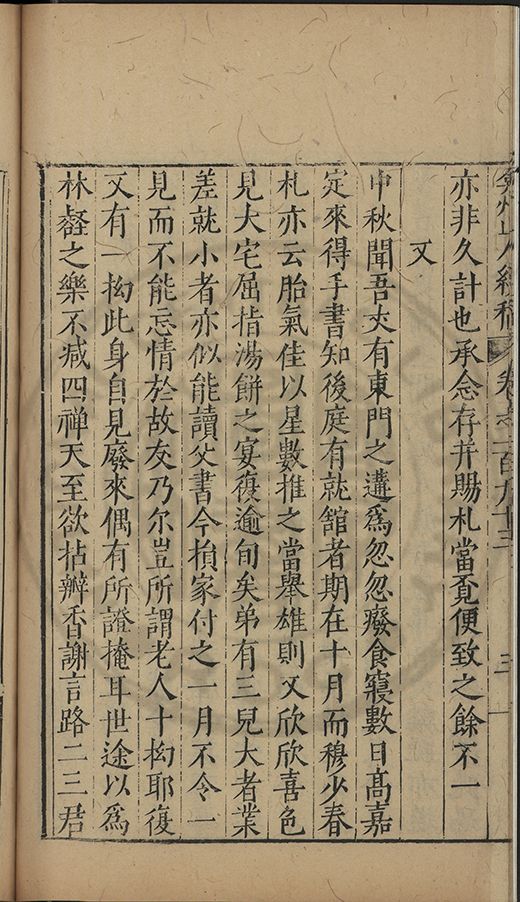 弇州山人續稿 卷之一百九十三 三
亦非久計也承念存并賜札當覔便致之餘不一
又
中秋聞吾丈有東門之遘爲忽忽癈食寢數日髙嘉
定來得手書知後庭有就舘者期在十月而穆少春
札亦云胎氣佳以星數推之當舉雄則又欣欣喜色
見大宅屈指湯餅之宴復逾旬矣弟有三兒大者業
差就小者亦似能讀父書今損家付之一月不令一
見而不能忘情於故友乃尔豈所謂老人十拗耶復
又有一拗此身自見廢來偶有所證掩耳世途以爲
林壑之樂不减四禅天至欲拈瓣香謝言路二三君